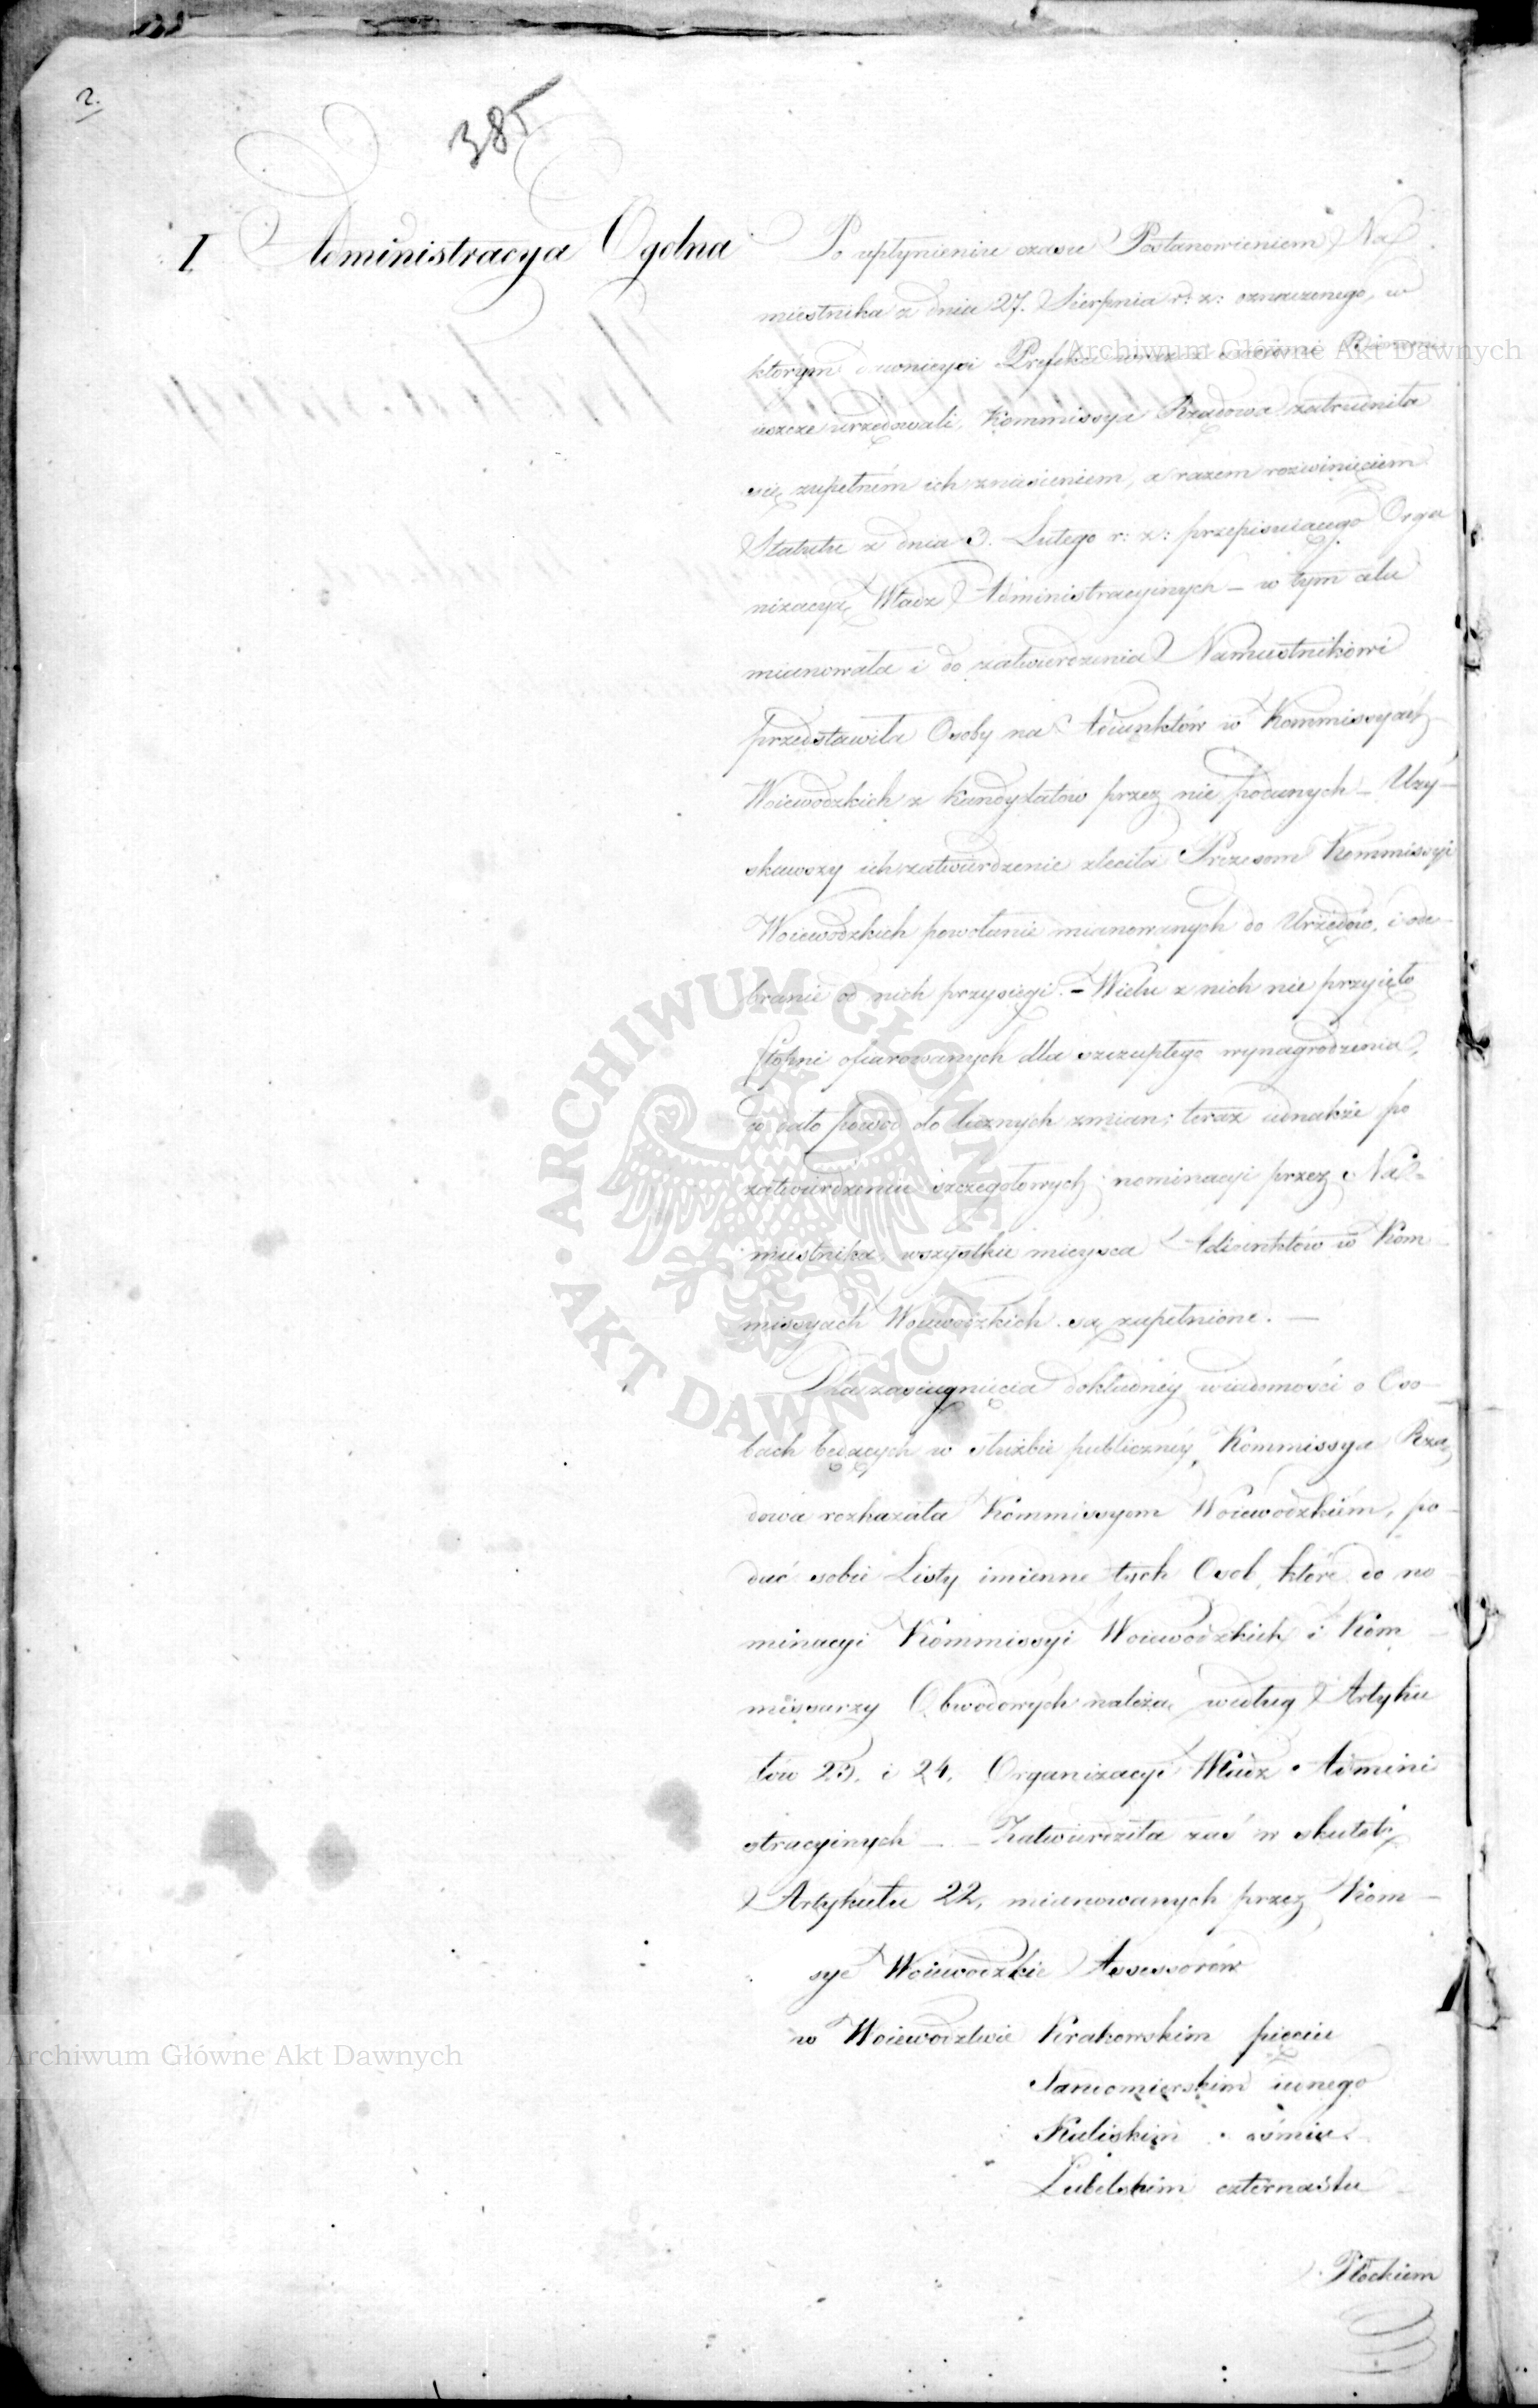 2.
385
I Administracya Ogolna
Po upłynieniu czasu Postanowieniem Na
miestnika z dnia 27. Sierpnia r: z: oznaczonego, w
którym Prefekci wraz z Biurami
ieszcze urzędowali, Kommissya Rządowa zatrudniła
się zupełném ich zniesieniem, a razem rozwinięciem
Statutu z dnia 3. Lutego r: z: przepisuiącego Orga
nizacyą Władz Administracyinych – w tym celu
mianowała i do zatwierdzenia Namiestnikowi
przedstawiła Osoby na Adiunktów w Kommissyach
Woiewodzkich z kandydatów przez nie podanych – Uzy–
skawszy ich zatwierdzenie zleciła Prezesom Kommissyi
Woiewodzkich powołanie mianowanych do Urzędów, i ode–
branie od nich przysięgi. – Wielu z nich nie przyięło
stopni ofiarowanych dla szczupłego wynagrodzenia,
co dało powód do licznych zmian; teraz iednakże po
zatwierdzeniu szczegołowych nominacyi przez Na–
miestnika, wszystkie mieysca Adiunktów w Kom
missyach Woiewodzkich są zupełnione. –
Dla zasiągnięcia dokładnéy wiadomości o Oso–
bach będących w służbie publicznéy, Kommissya Rzą
dowa rozkazała Kommissyom Woiewodzkim, po–
dać sobie Listy imienne tych Osob, które do no
minacyi Kommissyi Woiewodzkich i Kom
missarzy Obwodowych należą według Artyku
łów 23. i 24. Organizacyi Władz Admini
stracyinych – – Zatwierdziła zaś w skutek
Artykułu 22, mianowanych przez Kom–
sye Woiewodzkie Assessorów
w Woiewodztwie Krakowskim pięciu
Sandomierskim iednego
Kaliskim ośmiu
Lubelskim czternastu
Płockiem
Archiwum Główne Akt Dawnych
Archiwum Główne Akt Dawnych
ARCHIWUM GŁÓWNE AKT DAWNYCH